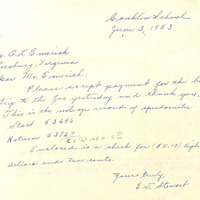 Conklin School
June 3, 1953
O. L. Emerick
Leesburg, Virginia
Dear Mr. Emerick:
Please accept payment for the
trip to the Zoo yesterday and thank you.
This is the mileage record of speedometer
Start 53646
Return 53727
Enclosed is a check for ($8.10) eight
dollars and ten cents.
Yours truly,
E. T. Stewart